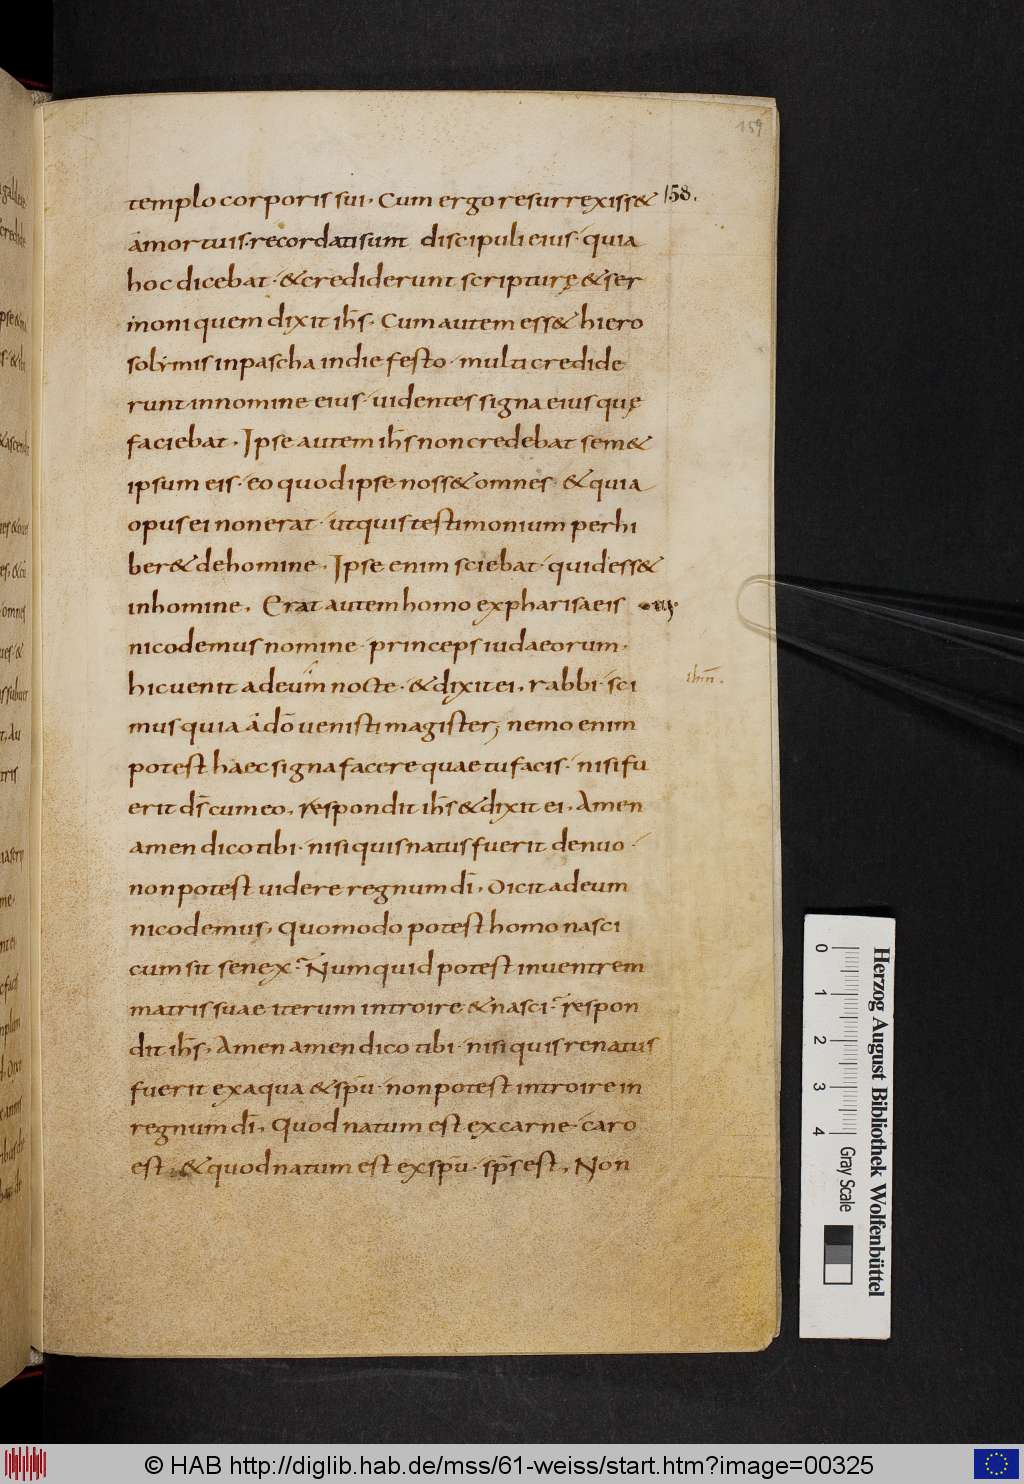 159
158.
templo corporis sui. Cum ergo resurrexiss&
amortuis. recordatisunt discipuli eius. quia
hoc dicebat. & crediderunt scripturę & ser
moni quem dixit ihs̄. Cum autem ess& hiero
solymis inpascha indie festo. multi credide
runt innomine eius. videntes signa eius quę
faciebat. Ipse autem ihs̄ non credebat sem&
ipsum eis. eo quod ipse noss& omnes. & quia
opus ei non erat. ut quis testimonium perhi
ber& dehomine. Ipse enim sciebat. quid ess&
inhomine. Erat autem homo expharisaeis
nicodemus nomine. princeps iudaeorum.
hic uenit ad eum nocte. & dixit ei. rabbi. sci
ihm̄.
mus quia a dō uenisti magister; nemo enim
potest haec signa facere quae tu facis. nisi fu
erit ds̄ cum eo. respondit ihs̄ & dixit ei. Amen
amen dico tibi. nisi quis natus fuerit denuo.
non potest uidere regnum dī. Dicit ad eum
nicodemus. Quomodo potest homo nasci
cum sit senex. Numquid potest inuentrem
matris suae iterum introire & nasci. respon
dit ihs̄. Amen amen dico tibi. nisi quis renatus
fuerit ex aqua & spū. non potest introire in
regnum dī. Quod natum est ex carne. caro
est. & quod natum est ex spū. sps̄ est. Non
Herzog August Bibliothek Wolfenbüttel
0 1 2 3 4 Gray Scale
© HAB http://diglib.hab.de/mss/61-weiss/start.htm?image=00325